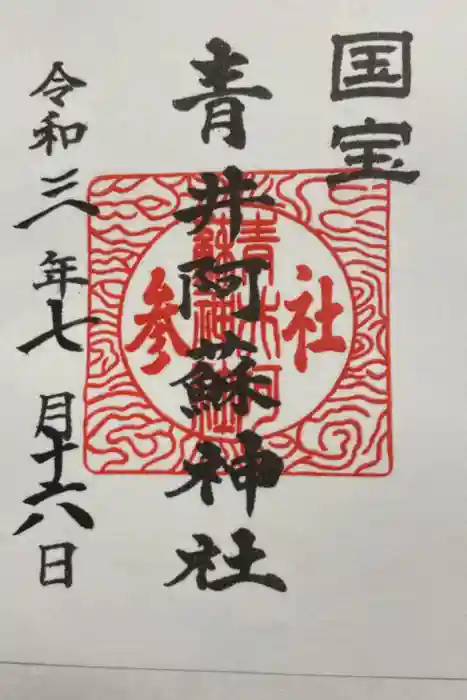 国宝
青井阿蘇神社
令和三年七月十六日
社参
青井阿蘇神社